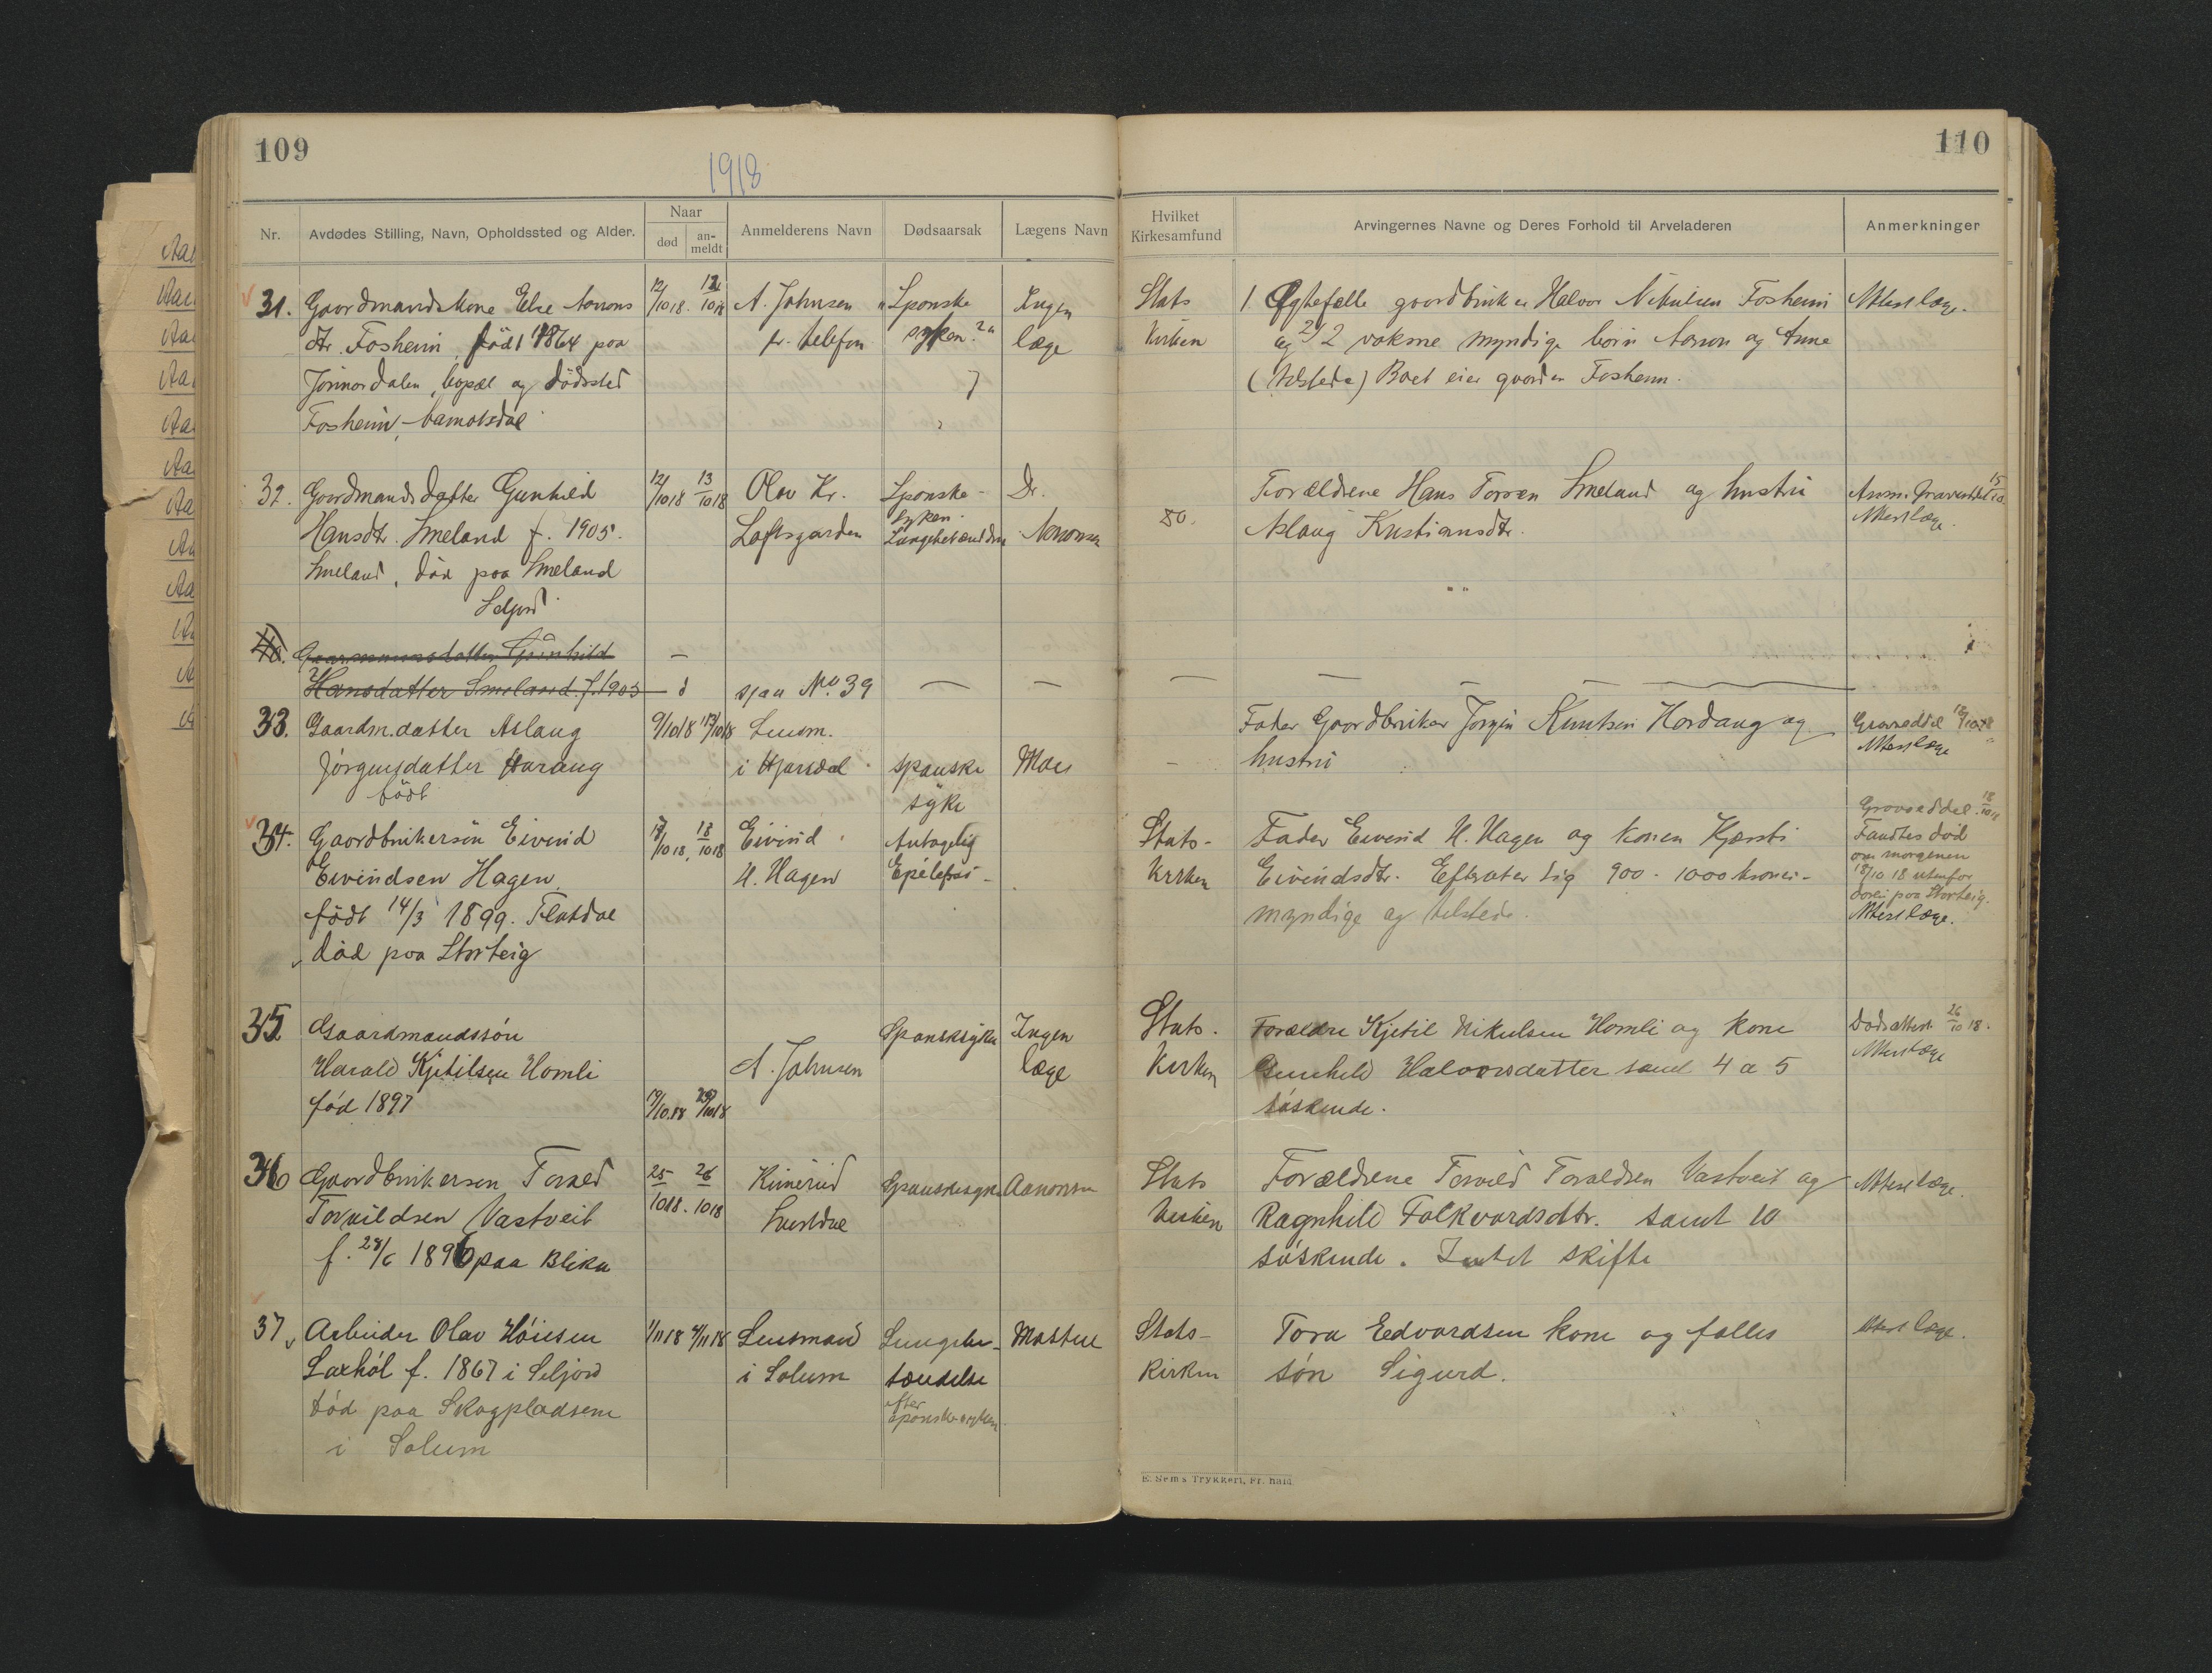 109
110
1918
Nr.
Avdødes Stilling, Navn, Opholdssted og Alder.
Naar
død
an-
meldt
Anmelderens Navn
Dødsaarsak
Lægens Navn
Hvilket
Kirkesamfund
Arvingernes Navne og Deres Forhold til Arveladeren
Anmerkninger
31. Gaardmandskone Else Aanons
dtr. Fosheim, født 1864 paa
Jönnordalen, bopæl og dödssted
Fosheim,
12/10 18. 12/10 18
A. Johnsen
pr. telefon
"Spanske
syken?"
Ingen
læge
Stats
Kirken
1. Ægtefælle gaardbruker Halvor Nikulsen Fosheim
og 2) 2 voksne myndige børn Aanon og Anne
(tilstede) Boet eier gaarden Fosheim.
Attest læge.
32. Gaardmandsdatter Gunhild
Hansdtr. Smeland f. 1905.
Smeland, død paa Smeland
Seljord
12/10 18 13/10 18
Olav Kr.
Loftsgarden
Spanske-
syken.
Dr.
Aanonsen
Forældrene Hans Torsen Smeland og hustru
Aslaug Kristiansdtr.
15/10
Attest læge.
40. Gaarmannsdatter Gunhild
Hansdatter Smeland. f. 1905
sjaa No. 39
33. Gaardm.datter Aslaug
Jörgensdatter Haraug
født
9/10 18 13/10 18
Lensm.
i Hjartdal
spanske
syke
Moe
Fader Gaardbruker Jörgen Knutsen Hordaug og
hustru
Attest læge
34. Gaardbrukersøn Eivind
Eivindsen Hagen
født 14/3 1899. Flatdal
død paa Storteig
18/10 18
Eivind
H. Hagen
Antagelig
Epilepsi-
Stats-
Kirken
Fader Eivind H. Hagen og konen Kjersti
Eivindsdtr. Efterlater sig 900 - 1000 kroner-
myndige og tilstede.
18/10 18
Fandtes død
om morgenen
18/10 18 utenfor
døren paa Storteig.
Attest læge.
35 Gaardmandssön
Harald Kjetilsen Homli
fød 1897
19/10.18
A. Johnsen
Spansksyke
Ingen
læge
Stats.
Kirken
Forældre Kjetil Nikulsen Homli og kone
Gunhild Halvorsdatter samt 4 a 5
söskende.
Dødsattest 26/10 18.
Attest læge
36 Gaardbrukersøn Torald
Torvildsen Vastveit
f. 28/6 1896 paa Blika
25/10 18. 26/10 18
Svartdal
Spanskesyke
Aanonsen
Stats
Kirken
Forældrene Torvild Toraldsen Vastveit og
Ragnhild Folkvardsdtr. samt 10
söskende. Intet skifte
Attest læge.
37. Arbeider Olav Höiesen
Laxhól f. 1867 i Seljord
död paa Skogpladsene
i Solum
1/11 18 4/11 18
Lensmand
i Solum
Lungebe-
tændelse
efter
spanskesyken
Stats-
Kirken
Tora Edvardsen kone og fælles
són Sigurd.
Attest læge.
E. Sem's Trykkeri, Fr.hald.